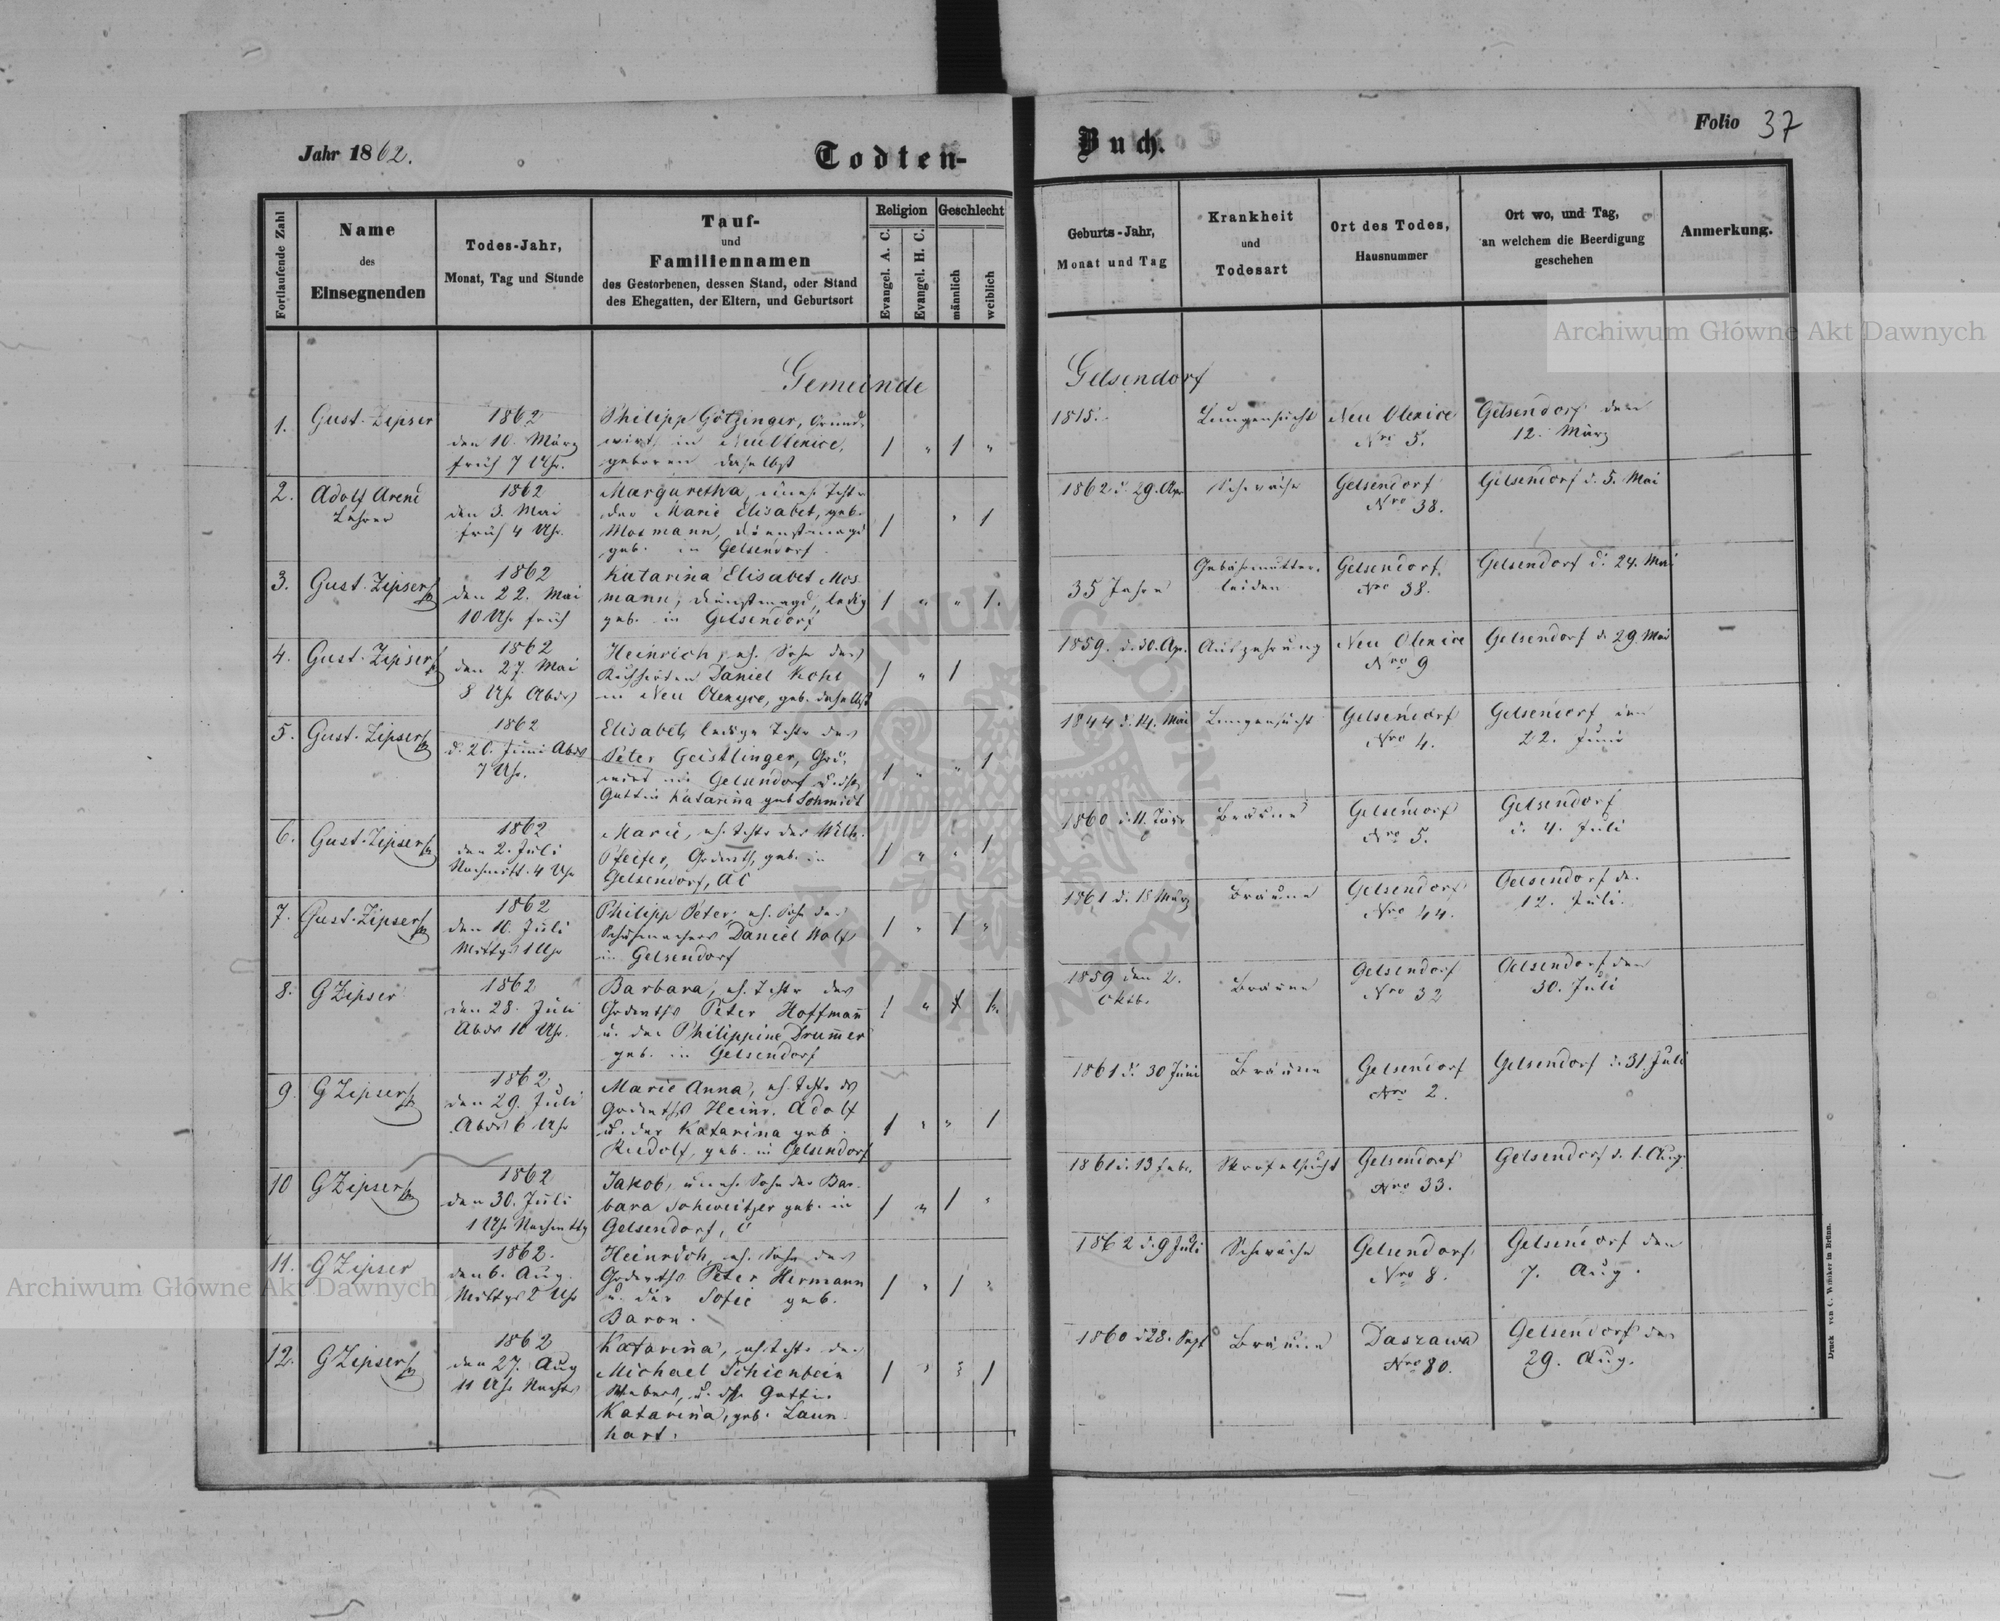 Jahr 1862.
Todten-
Buch.
Folio 37
Fortlaufende Zahl
Name
des
Einsegnenden
Todes-Jahr,
Monat, Tag und Stunde
Tauf-
und
Familiennamen
des Gestorbenen, dessen Stand, oder Stand
des Ehegatten, der Eltern, und Geburtsort
Religion
Evangel. A. C.
Evangel. H. C.
Geschlecht
männlich
weiblich
Geburts-Jahr,
Monat und Tag
Krankheit
und
Todesart
Ort des Todes,
Hausnummer
Ort wo, und Tag,
an welchem die Beerdigung
geschehen
Anmerkung.
Archiwum Główne Akt Dawnych
Gemeinde
Gelsendorf
1.
Gust. Zipser
1862
den 10. März
früh 7 Uhr.
Philipp Götzinger, Grund-
wirth in Neu Olexice,
geboren daselbst
1815.
Lungensucht
Neu Olexice
Nro 5.
Gelsendorf den
12. März
2.
Adolf Areni
Lehrer
1862
den 3. Mai
früh 4 Uhr.
Margaretha, uneh. Tchtr
der Marie Elisabet, geb.
Mosmann, Dienstmagd
geb. in Gelsendorf.
1862 d. 29. Apr
Schwäche
Gelsendorf
Nro 38.
Gelsendorf d. 5. Mai
3.
Gust. Zipser
1862
den 22. Mai
10 Uhr früh
Katarina Elisabet Mos
mann, Dienstmagd, ledig
geb. in Gelsendorf
35 Jahre
Gebährmutter-
leiden
Gelsendorf
Nro 38.
Gelsendorf d. 24. Mai
4.
Gust. Zipser
1862
den 27. Mai
8 Uhr Abds
Heinrich, eh. Sohn des
Kuhhirten Daniel Kohl
in Neu Olexyce, geb. daselbst
1859. d. 30. Ap.
Auszehrung
Neu Olexice
Nro 9
Gelsendorf d. 29. Mai
5.
Gust. Zipser
1862
d. 20. Juni Abds
7 Uhr.
Elisabet, ledige Tchtr des
Peter Geistlinger, Grd,
wirt in Gelsendorf u. dssn
Gattin Katarina geb Schmidt
1844 d. 14. Mai
Lungensucht
Gelsendorf
Nro 4.
Gelsendorf den
22. Juni
6.
Gust. Zipser
1862
den 2. Juli
Nachmitt. 4 Uhr
Marie, eh. Tchtr des Wilh.
Pfeifer, Grdwrth, geb. in
Gelsendorf, AC
1860 d. 11.
Bräune
Gelsendorf
Nro 5.
Gelsendorf
d. 4. Juli
7.
Gust. Zipser
1862
den 10. Juli
Mittgs 1 Uhr
Philipp Peter, eh. Sohn des
Schuhmachers Daniel Wolf
in Gelsendorf
1861 d. 18 März
Bräune
Gelsendorf
Nro 44.
Gelsendorf de.
12. Juli.
8.
G Zipser
1862
den 28. Juli
Abds 10 Uhr.
Barbara, eh. Tchtr des
Grdwrths Peter Hoffmann
u. der Philippine Drummer
geb. in Gelsendorf
1859 den 2.
Oktb.
Bräune
Gelsendorf
Nro 32
Gelsendorf den
30. Juli
9.
G Zipser
1862
den 29. Juli
Abds 6 Uhr
Marie Anna, eh. Tchtr ds
Grdwrths Heinr. Adolf
u. der Katarina geb.
Rudolf, geb. in Gelsendorf
1861 d. 30 Juni
Bräune
Gelsendorf
Nro 2.
Gelsendorf d. 31. Juli
10
G Zipser
1862
den 30. Juli
1 Uhr Nachmttg
Jakob, uneh. Sohn der Bar-
bara Schweitzer geb. in
Gelsendorf,
1861 d. 13 Febr.
Skrofelsucht
Gelsendorf
Nro 33.
Gelsendorf d. 1. Aug.
11.
G Zipser
1862.
den 6. Aug.
Mittgs 2 Uhr
Heinrich, eh. Sohn des
Grdwrths Peter Hermann
u. der Sofie geb.
Baron.
1862 d. 9 Juli
Schwäche
Gelsendorf
Nro 8.
Gelsendorf den
7. Aug.
12.
G Zipser
1862
den 27. Aug
11 Uhr Nachts
Katarina, eh. Tchtr des
Michael Schienbein
Webers, u. dssn Gattin
Katarina, geb. Laun-
hart.
1860 d 28. Sept
Bräune
Daszawa
Nro 80.
Gelsendorf den
29. Aug.
Archiwum Główne Akt Dawnych
ARCHIWUM GŁÓWNE AKT DAWNYCH